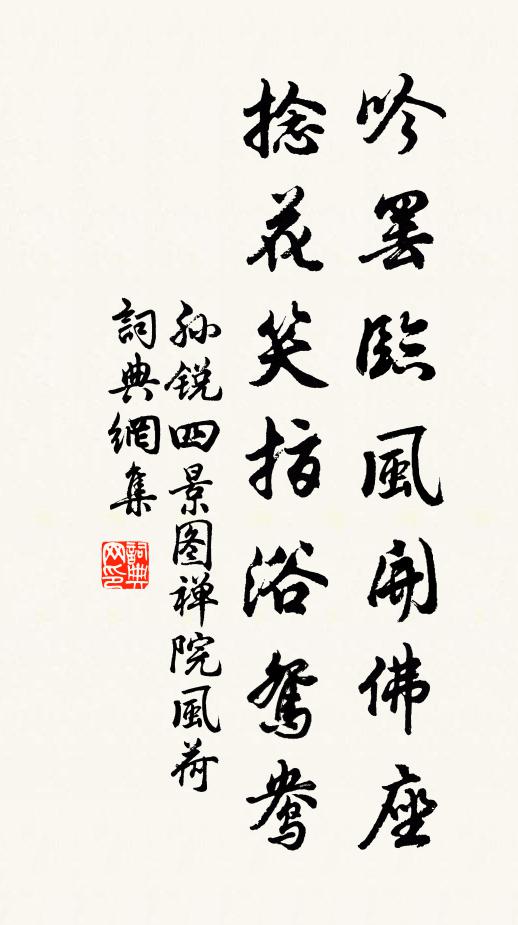 吟罢臨風開佛座
捻花笑指浴鴛鴦
孙锐四景图禅院風荷
詞典網集
詞典网印